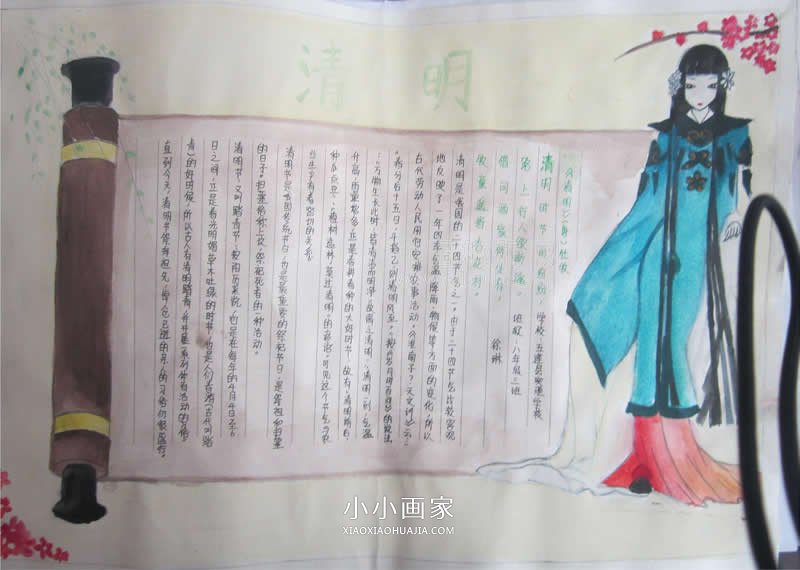 清明
《清明》(唐)杜牧
清明时节雨纷纷，
路上行人欲断魂。
借问酒家何处有，
牧童遥指杏花村。
学校：五莲县
班级：八年级三班
徐琳
清明是我国的二十四节气之一。由于二十四节气比较客观
地反映了一年四季气温、降雨、物候等方面的变化，所以
古代劳动人民用它安排农事活动。《淮南子·天文训》云：
“春分后十五日，斗指乙，则清明风至。”《岁时百问》的说法
“万物生长此时，皆清洁而明净。故谓之清明。”清明一到，气温
升高，雨量增多，正是春耕春种的大好时节。故有“清明前后，
种瓜点豆”、“植树造林，莫过清明”的农谚。可见这个节气与农
业生产有着密切的关系。
清明节是我国传统节日，也是最重要的祭祀节日，是祭祖和扫墓
的日子。扫墓俗称上坟，祭祀死者的一种活动。
清明节，又叫踏青节，按阳历来说，它是在每年的4月4日至6
日之间，正是春光明媚草木吐绿的时节，也是人们春游（古代叫踏
青）的好时候，所以古人有清明踏青，并开展一系列体育活动的习俗。
直到今天，清明节祭拜祖先，悼念已逝的亲人的习俗仍很盛行。
小小画家
XIAOXIAOHUAJIA.COM